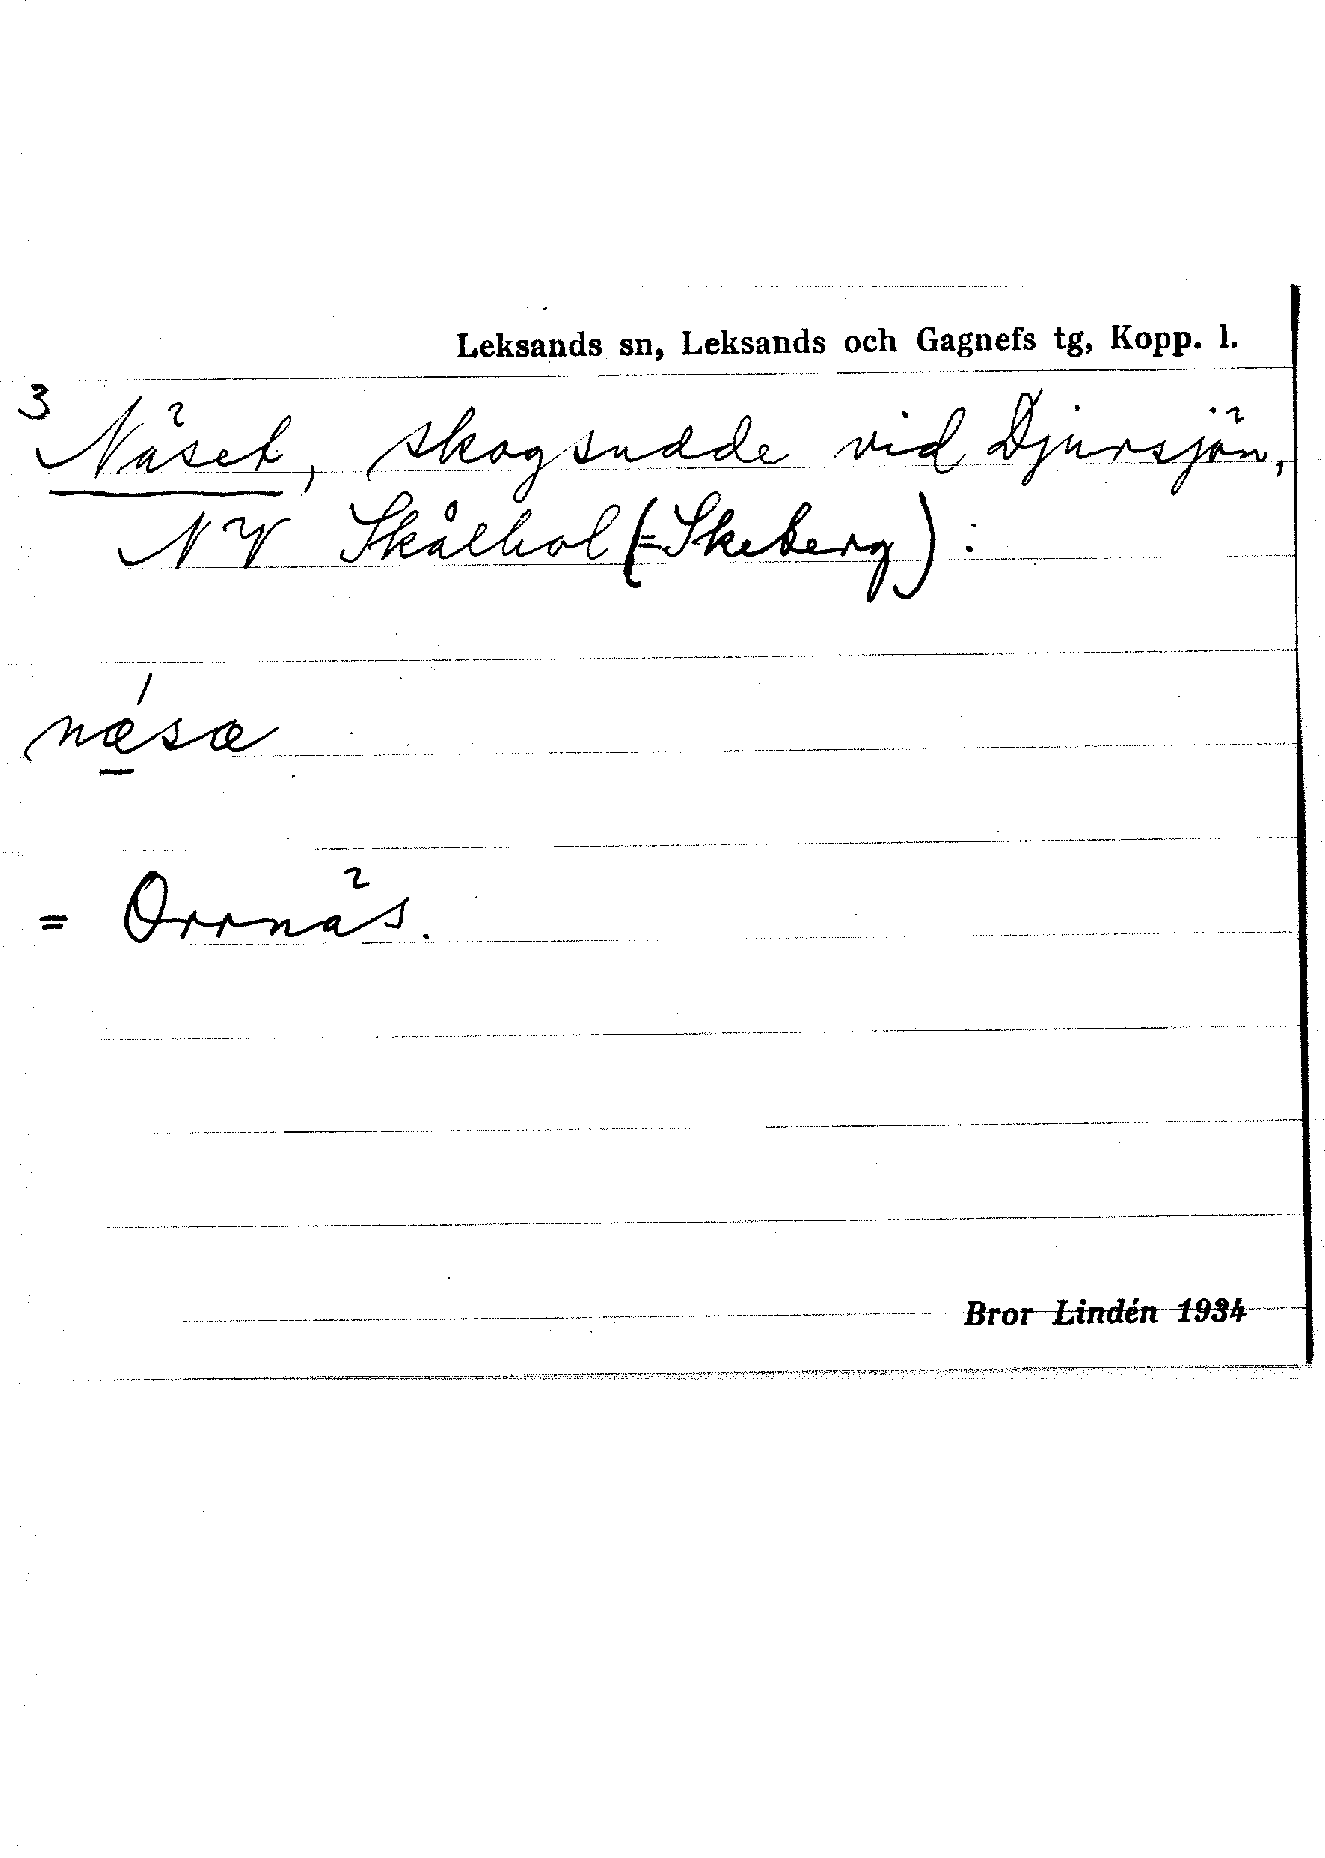 Leksands sn, Leksands och Gagnefs tg, Kopp. l.
3 Näset, skogsudde vid Djursjön,
NV Skålbol (=Skeberg):
nǽ̲sæ
= Orrnäs.
Bror Lindén 1934